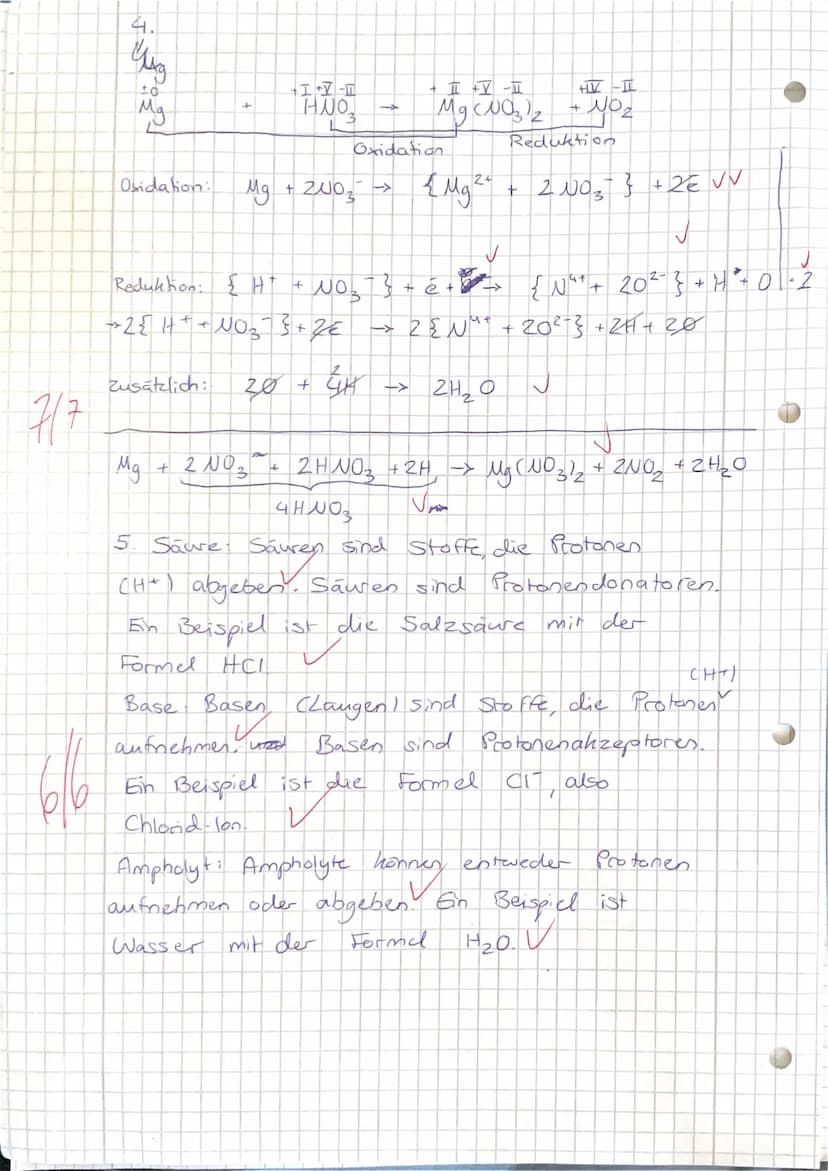 4.
Mg
±0 +I +V -II + II +V -II +IV -II
Mg + HNO3 → Mg(NO3)2 + NO2
Oxidation Reduktion
Oxidation: Mg + 2NO3⁻ → {Mg²⁺ + 2NO3⁻} + 2e⁻ ✓✓
Reduktion: {H⁺ + NO3⁻} + e⁻ + → {N⁴⁺ + 2O²⁻} + H + O | · 2
→ 2{H⁺ + NO3⁻} + 2e⁻ → 2{N⁴⁺ + 2O²⁻} + 2H + 2O
Zusätzlich: 2O + 4H → 2H2O ✓
2
7/7
Mg + 2NO3⁻ + 2HNO3 + 2H → Mg(NO3)2 + 2NO2 + 2H2O
4HNO3 ✓
5. Säure: Säuren sind Stoffe, die Protonen
(H+) abgeben. Säuren sind Protonendonatoren.
Ein Beispiel ist die Salzsäure mit der
Formel HCl. ✓
(H+)
Base: Basen (Laugen) sind Stoffe, die Protonen
aufnehmen. Basen sind Protonenakzeptoren.
6/6
Ein Beispiel ist die Formel Cl⁻, also
Chlorid-Ion. ✓
Ampholyt: Ampholyte können entweder Protonen
aufnehmen oder abgeben. Ein Beispiel ist
Wasser mit der Formel H2O. ✓